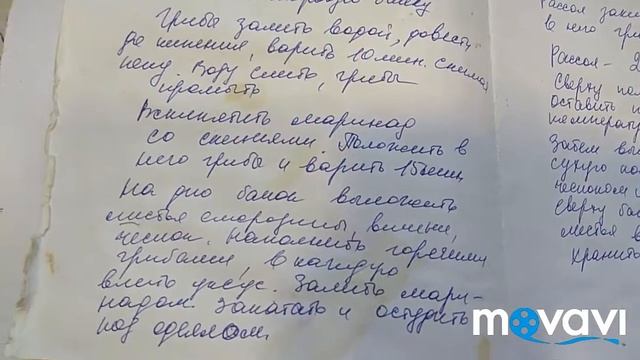 банку
Грибы залить водой, довести
до кипения, варить 10 мин. Снимая
пену. Воду слить, грибы
промыть
Вскипятить маринад
со специями. Положить в
него грибы и варить 15 мин
На дно банок выложить
листья смородины, вишни,
чеснок. Наполнить горячими
грибами, в каждую
влить уксус. Залить мари-
надом. Закатать и остудить
под одеялом.
Рассол
в него гри
Рассол -
Сверху пол
оставить
температу
Затем вы
сухую
чесноком
Сверху ба
листья в
Хранить
movavi